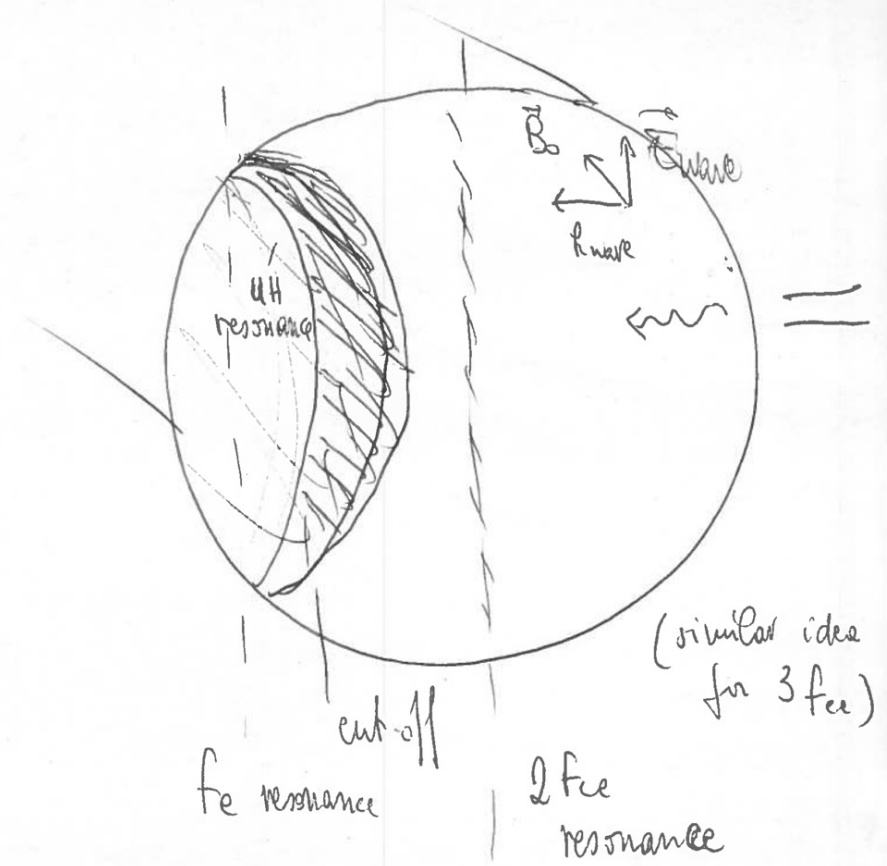 B⃗₀
E⃗wave
kwave
UH
resonance
(similar idea
for 3 fce)
cut-off
fc resonance
2 fce
resonance